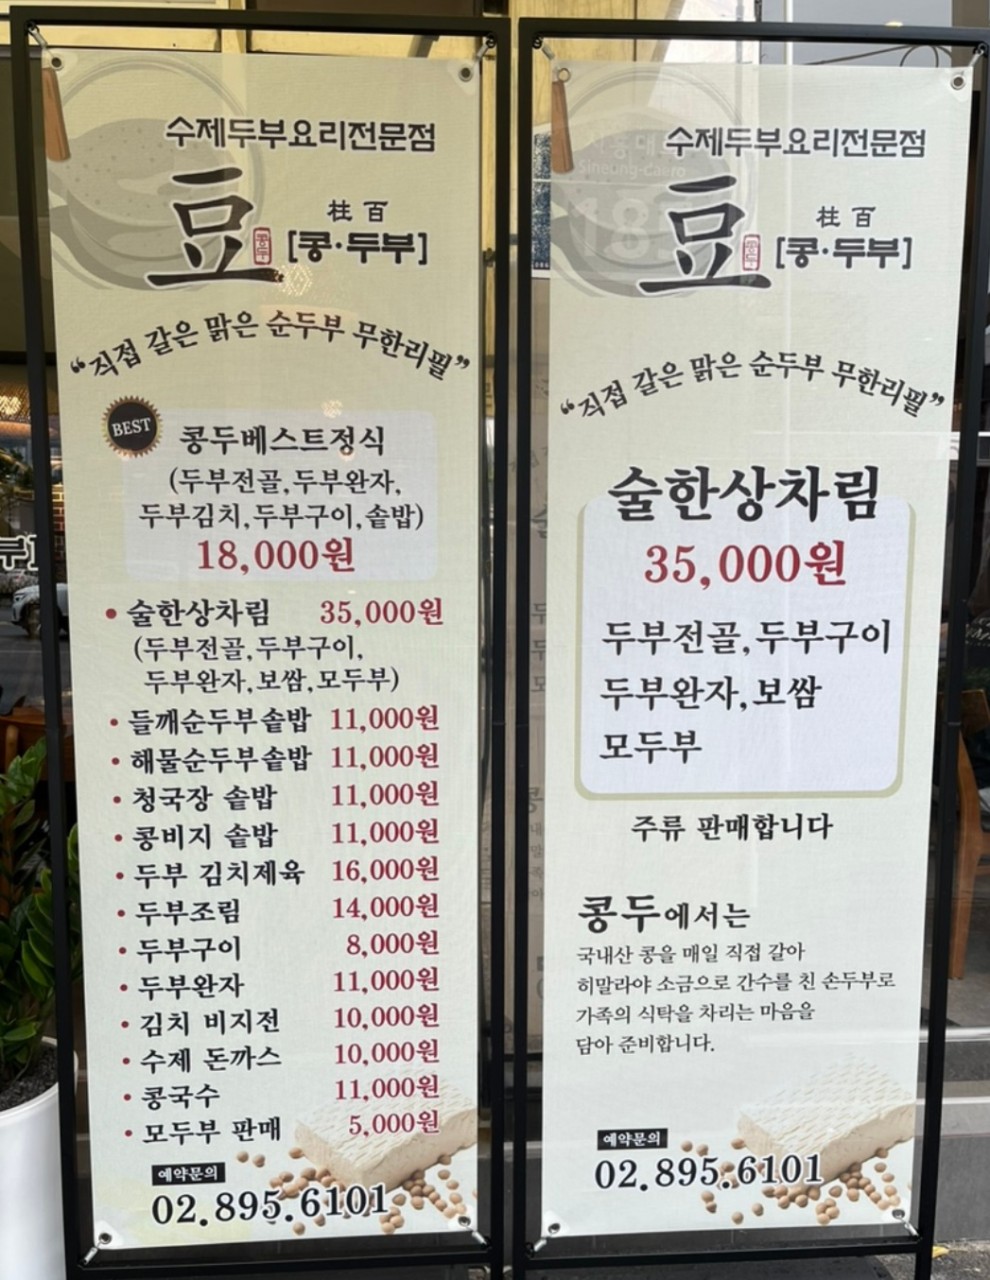 수제두부요리전문점
豆
百
[콩·두부]
"직접 갈은 맑은 순두부 무한리필"
BEST
콩두베스트정식
(두부전골,두부완자,
두부김치,두부구이,솥밥)
18,000원
• 술한상차림 35,000원
(두부전골,두부구이,
두부완자,보쌈,모두부)
• 들깨순두부솥밥 11,000원
• 해물순두부솥밥 11,000원
• 청국장 솥밥 11,000원
• 콩비지 솥밥 11,000원
• 두부 김치제육 16,000원
• 두부조림 14,000원
• 두부구이 8,000원
• 두부완자 11,000원
• 김치 비지전 10,000원
• 수제 돈까스 10,000원
• 콩국수 11,000원
• 모두부 판매 5,000원
예약문의
02.895.6101
수제두부요리전문점
豆
百
[콩·두부]
"직접 갈은 맑은 순두부 무한리필"
술한상차림
35,000원
두부전골,두부구이
두부완자,보쌈
모두부
주류 판매합니다
콩두에서는
국내산 콩을 매일 직접 갈아
히말라야 소금으로 간수를 친 손두부로
가족의 식탁을 차리는 마음을
담아 준비합니다.
예약문의
02.895.6101